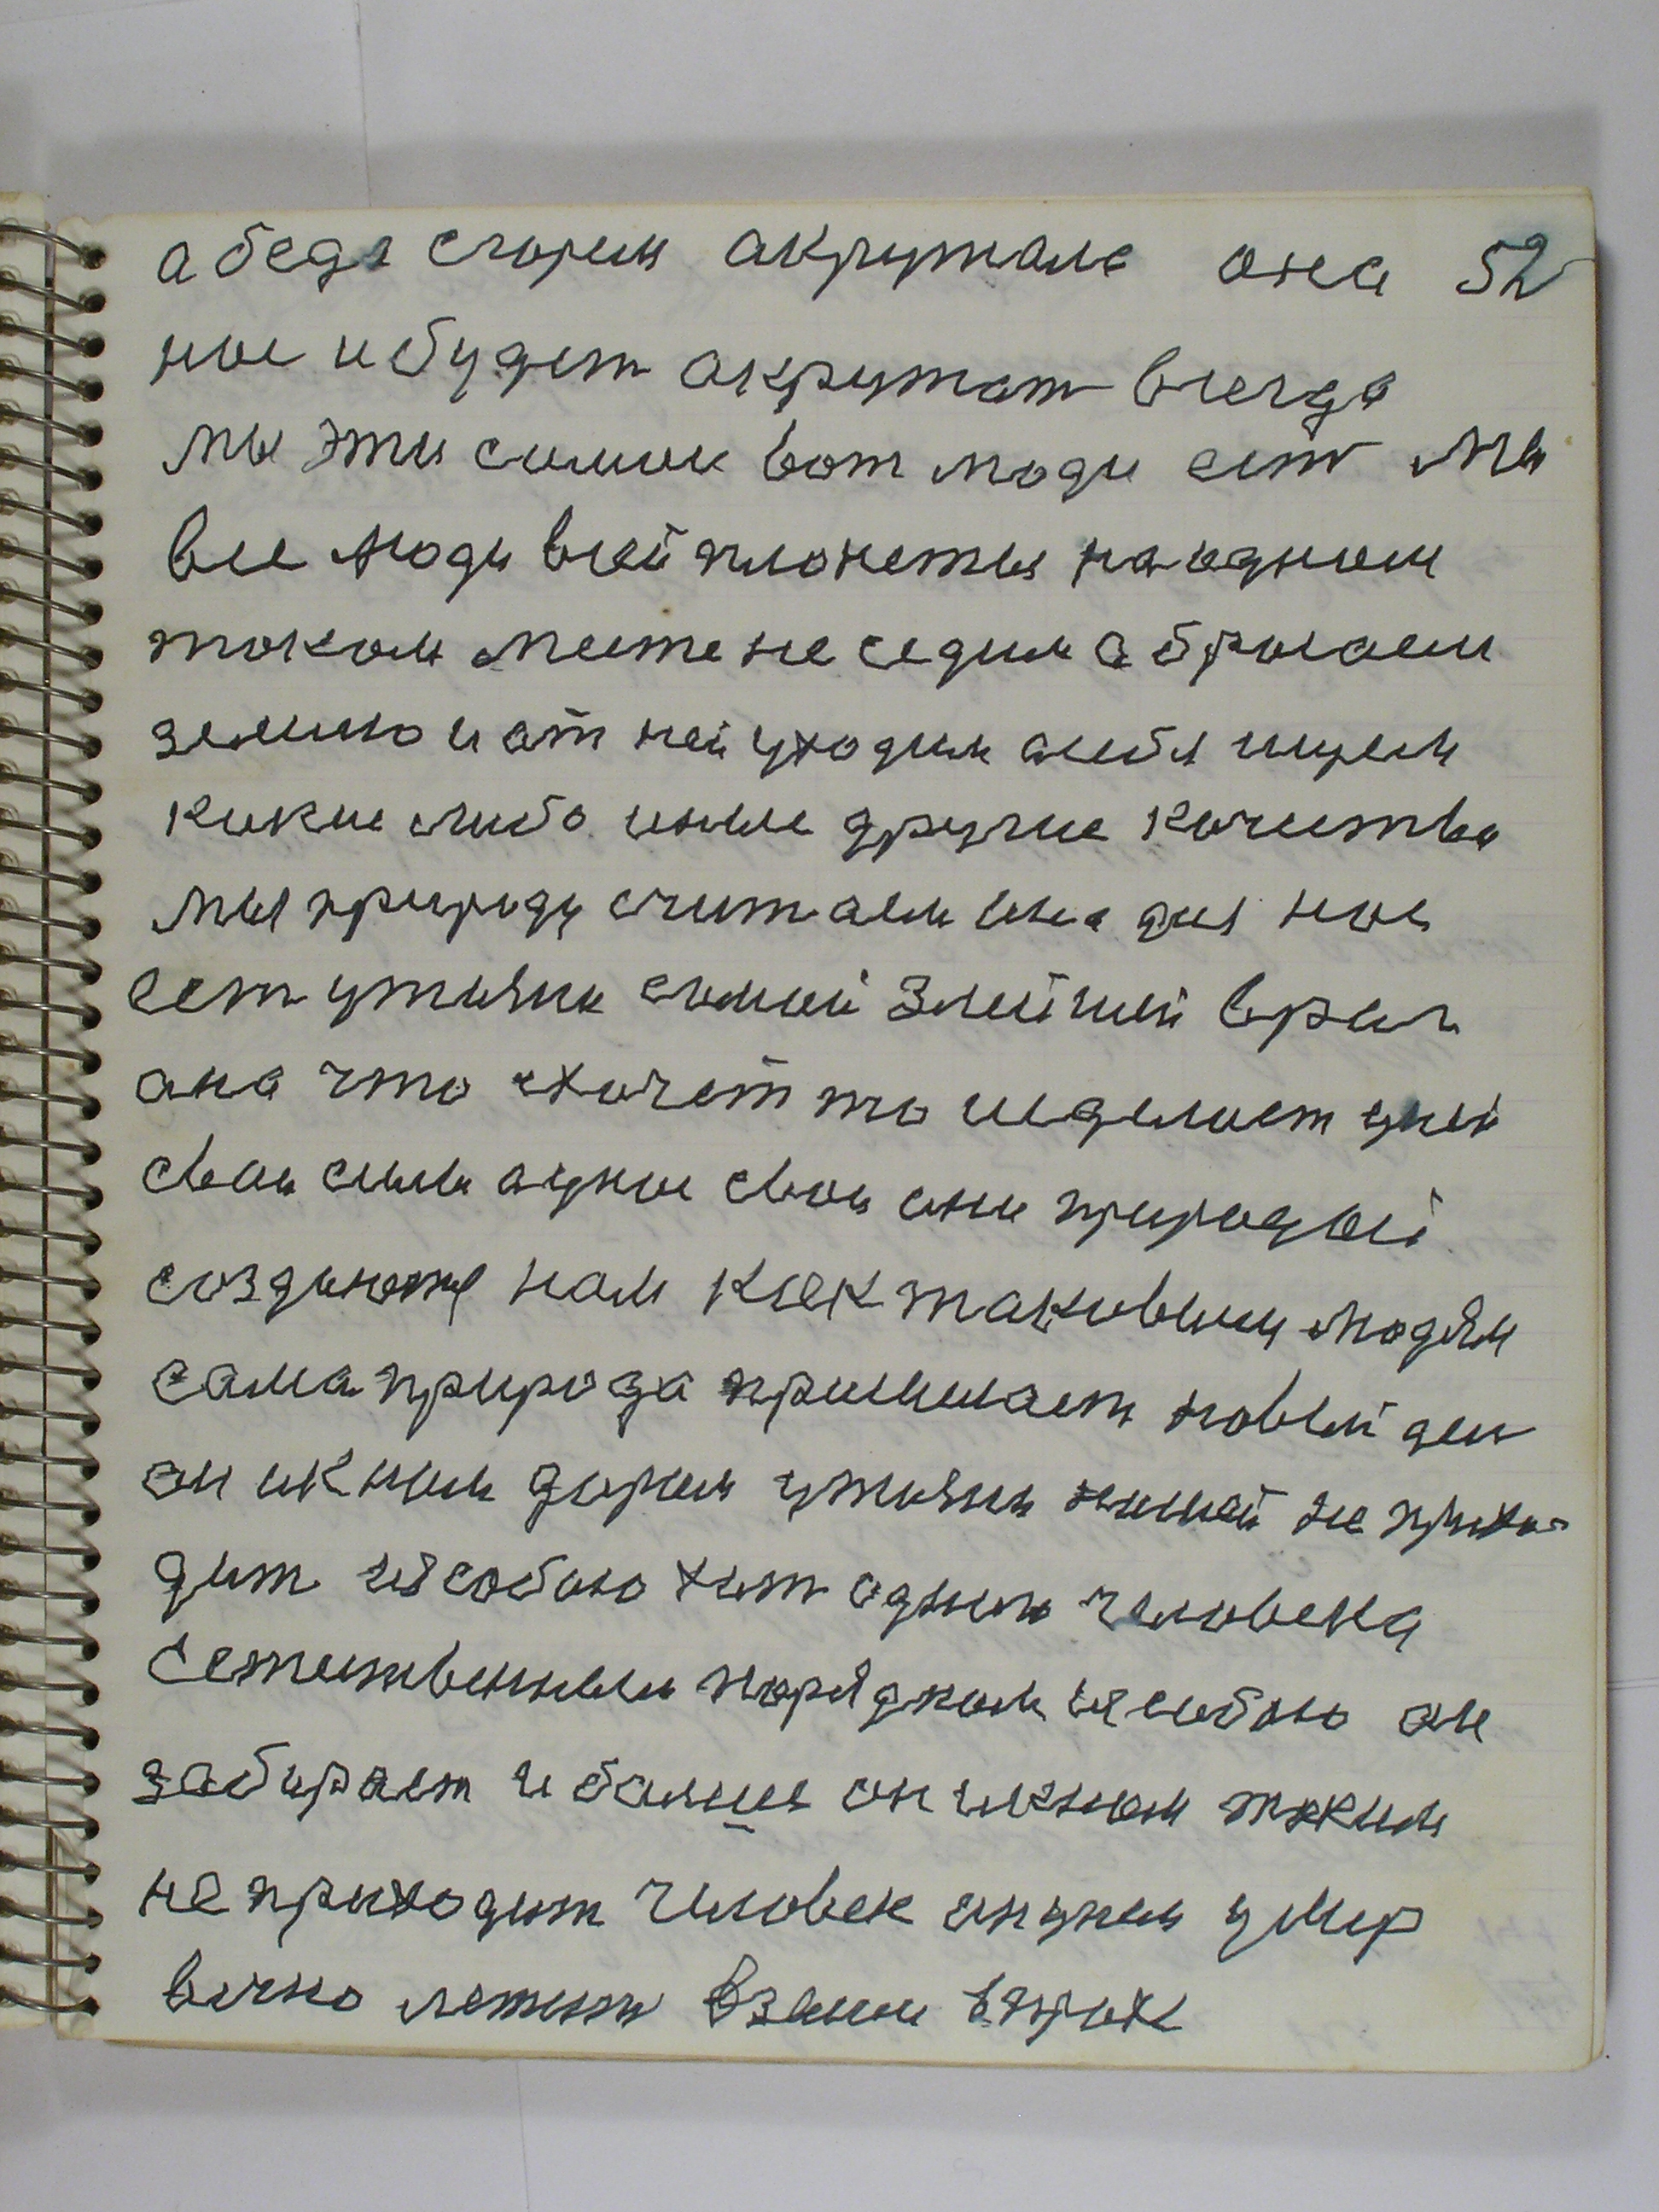 а беда с горем акружала она 52
нас и будет акружат всегда
мы эти самые вот люди ест мы
все люди всей планеты на одном
таком месте не седим а бросаем
землю и от ней уходим а себя ищем
какие либо иные другие качества
мы природу считаем она для нас
ест утиянь самый злейшей враг
она что хочет то и сделает у ней
свои силы а у нас свои они природай
создаются нам как таковым людям
сама природа присылает новый ден
он и к ним даром утиянь жизней не прихо-
дит из собою хат одного человека
естественным порядком из собою он
забирает и больше он и к ним таким
не приходит человек он у нас умер
вечно лежит в земле в прах